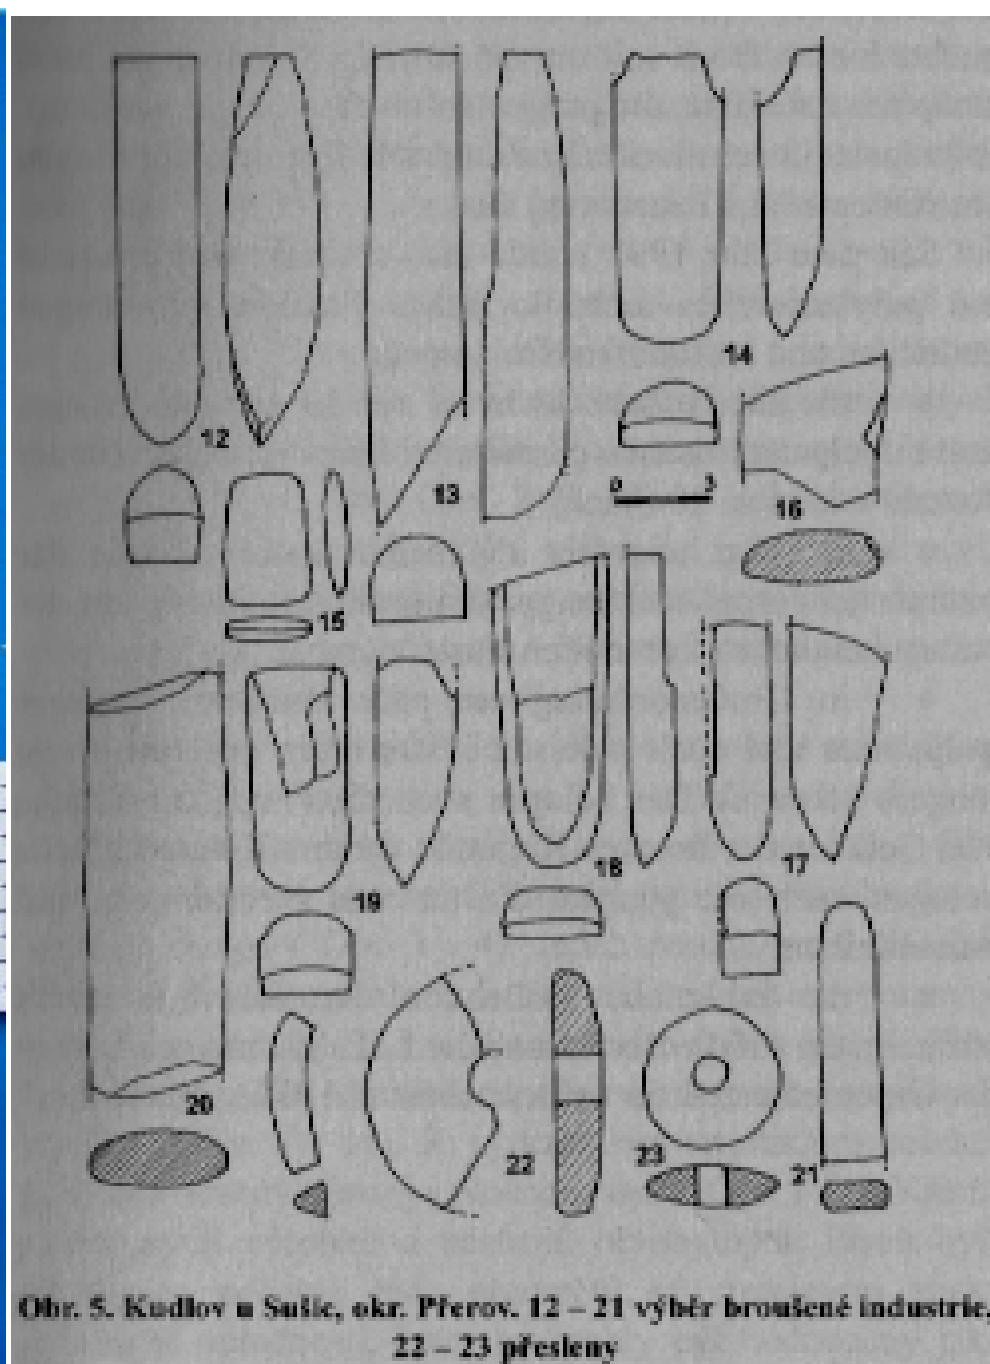 12
13
14
0 3
16
15
19
18
17
20
22
23
21
Obr. 5. Kudlov u Sušic, okr. Přerov. 12 – 21 výběr broušené industrie,
22 – 23 přesleny